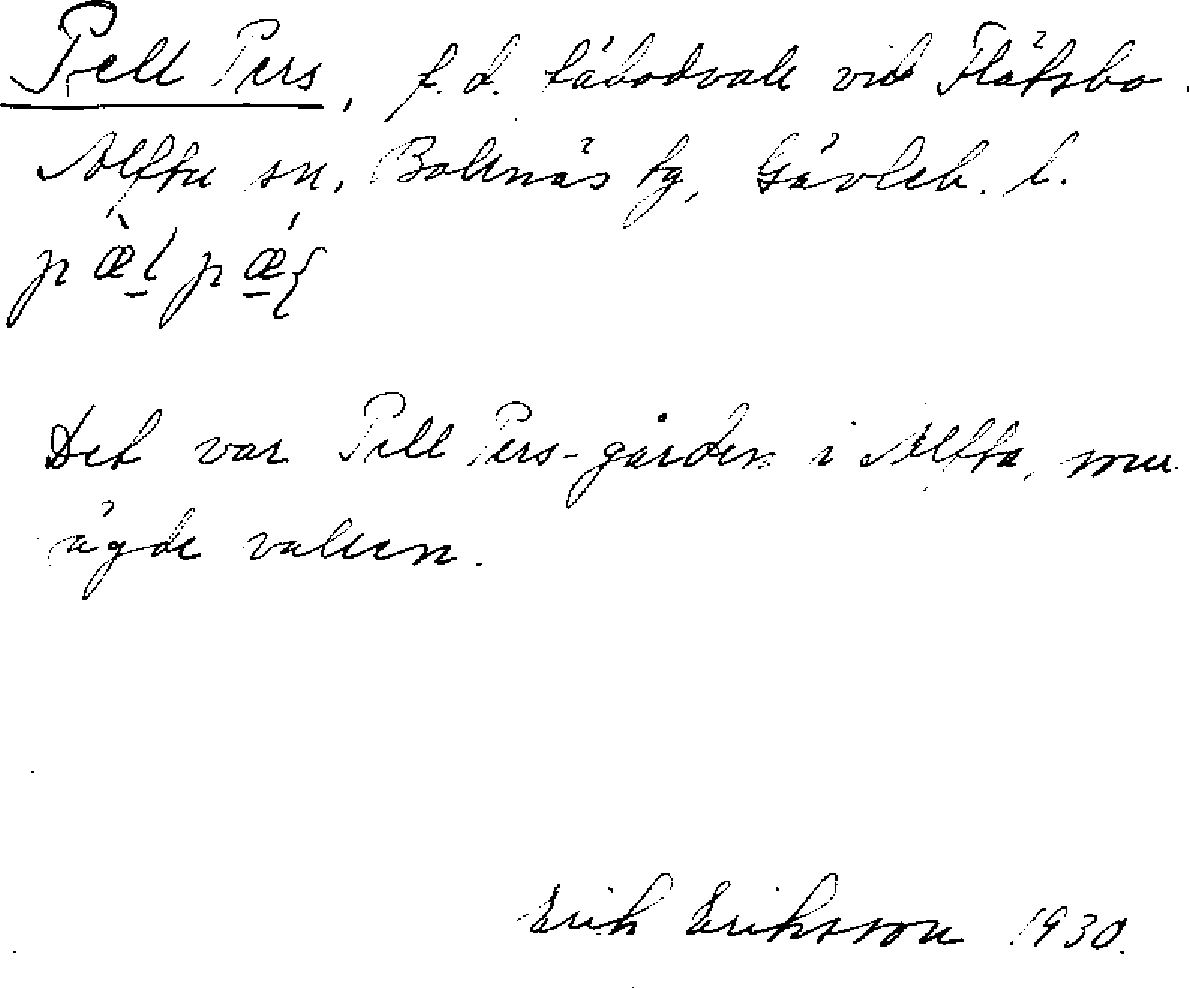 Pell Pers, f. d. fäbodvall vid Flätsbo.
Alfta sn, Bollnäs tg, Gävleb. l.
Det var Pell Pers-gården i Alfta, som
ägde vallen.
Erik Eriksson 1930.